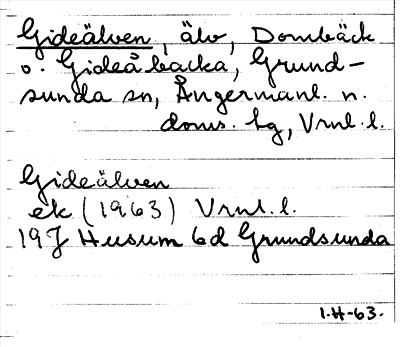 Gideälven, älv, Dombäck
o. Gideåbacka, Grund-
sunda sn, Ångermanl. n.
doms. hg, Vrnl. l.
Gideälven
ek (1963) Vrnl. l.
19J Husum 6d Grundsunda
I.H-63.